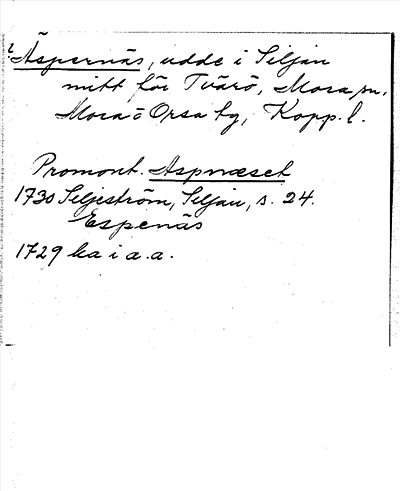 Äspernäs, udde i Siljan
mitt för Tvärö, Mora sn,
Mora o Orsa tg, Kopp. l.
Promont. Aspnæset
1730 Siljeström, Siljan, s. 24.
Espenäs
1729 ka i a.a.